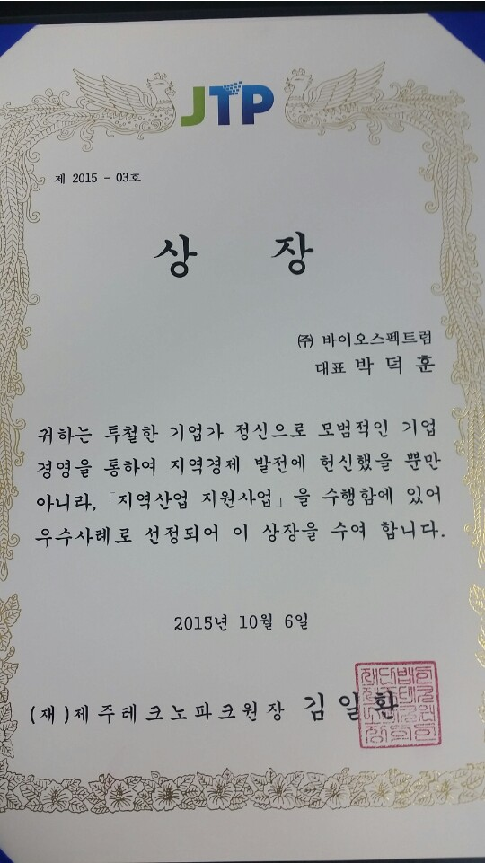 JTP
제 2015 - 03호
상 장
㈜ 바이오스펙트럼
대표 박 덕 훈
귀하는 투철한 기업가 정신으로 모범적인 기업
경영을 통하여 지역경제 발전에 헌신했을 뿐만
아니라, 「지역산업 지원사업」을 수행함에 있어
우수사례로 선정되어 이 상장을 수여 합니다.
2015년 10월 6일
(재)제주테크노파크원장 김 일 환